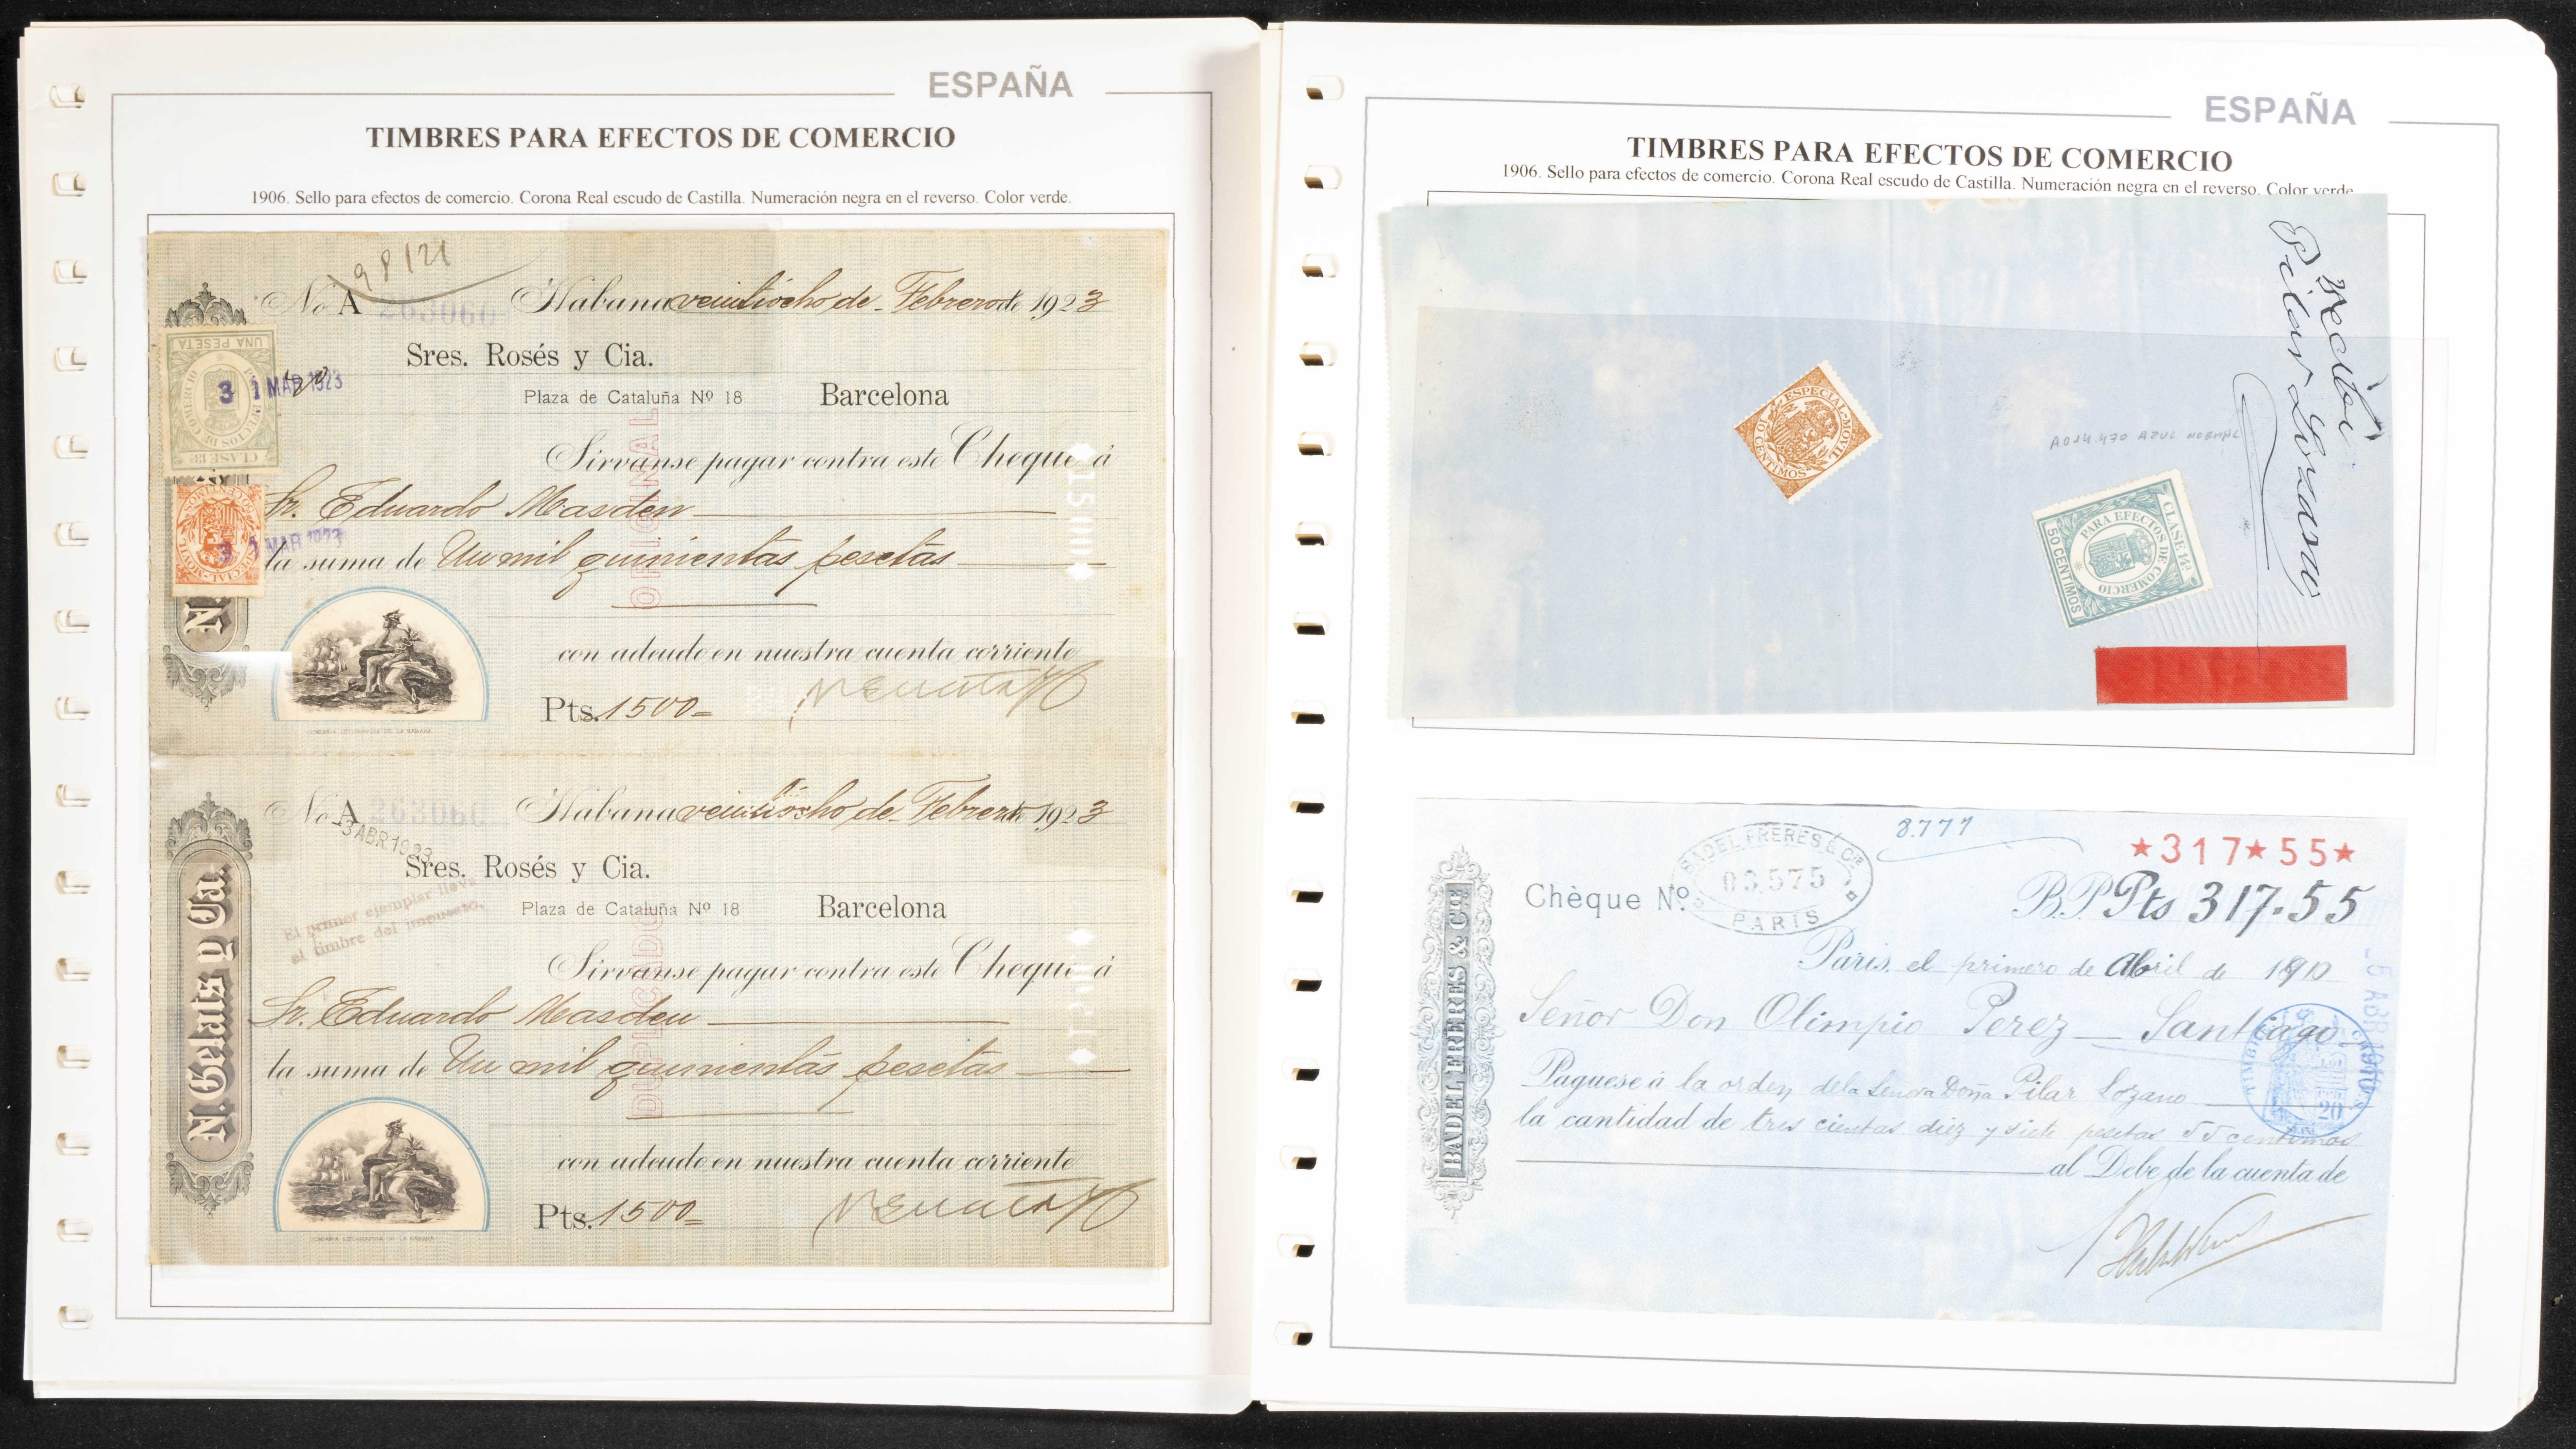 ESPAÑA
TIMBRES PARA EFECTOS DE COMERCIO
1906. Sello para efectos de comercio. Corona Real escudo de Castilla. Numeración negra en el reverso. Color verde.
98121
No A 263060 Habana veintiocho de Febrero de 1923
UNA PESETA
EFECTOS DE COMERCIO
CLASE 13ª
3 1 MAR 1923
Sres. Rosés y Cia.
Plaza de Cataluña Nº 18 Barcelona
ORIGINAL
Sirvanse pagar contra este Cheque á
Sr. Eduardo Masdeu
ESPECIAL MOVIL
3 1 MAR 1923
la suma de Un mil quinientas pesetas
con adeudo en nuestra cuenta corriente
N.
Pts. 1500=
COMPAÑIA LITOGRAFICA DE LA HABANA
No A 263060 Habana veintiocho de Febrero de 1923
3 ABR. 1923
Sres. Rosés y Cia.
El primer ejemplar lleva
el timbre del impuesto.
Plaza de Cataluña Nº 18 Barcelona
DUPLICADO
Sirvanse pagar contra este Cheque á
Sr. Eduardo Masdeu
la suma de Un mil quinientas pesetas
con adeudo en nuestra cuenta corriente
N. Gelats y Ca.
Pts. 1500=
COMPAÑIA LITOGRAFICA DE LA HABANA
ESPAÑA
TIMBRES PARA EFECTOS DE COMERCIO
1906. Sello para efectos de comercio. Corona Real escudo de Castilla. Numeración negra en el reverso. Color verde.
Recibí
Pilar Lozano
ESPECIAL MOVIL
10 CENTIMOS
A014.470 AZUL NORMAL
CLASE 14ª
PARA EFECTOS DE COMERCIO
50 CENTIMOS
8.777
★317★55★
Chèque Nº
BADEL FRERES & Cie
03.575
PARIS
B.P. Pts 317.55
Paris, el primero de Abril de 1910
5 ABR 1910
Señor Don Olimpio Perez — Santiago
Paguese á la orden de la Senora Doña Pilar Lozano
la cantidad de tres cientas diez y siete pesetas 55 centimos
al Debe de la cuenta de
BADEL FRERES & Cie
20